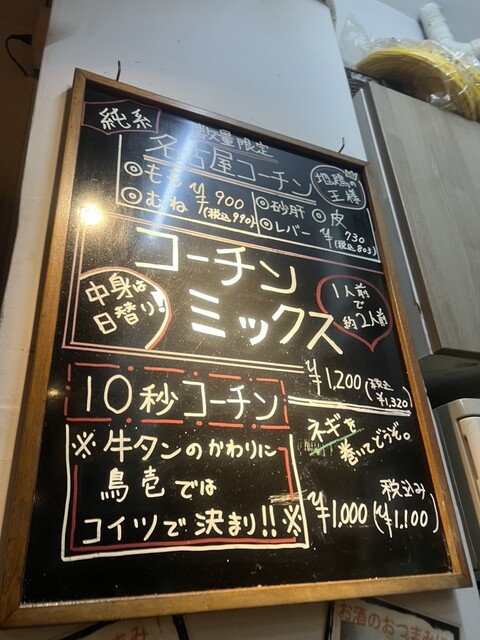 純系
数量限定
名古屋コーチン
地鶏の
王様
◎もも
◎むね
¥900
(税込990)
◎砂肝
◎レバー
◎皮
¥730
(税込803)
コーチン
ミックス
中身は
日替り!
1人前
で
約2人前
¥1,200(税込
¥1,320)
10秒コーチン
ネギを
巻いてどうぞ。
※牛タンのかわりに
鳥壱では
コイツで決まり!!※
税込み
¥1.000(¥1.100)
お酒のおつまみに